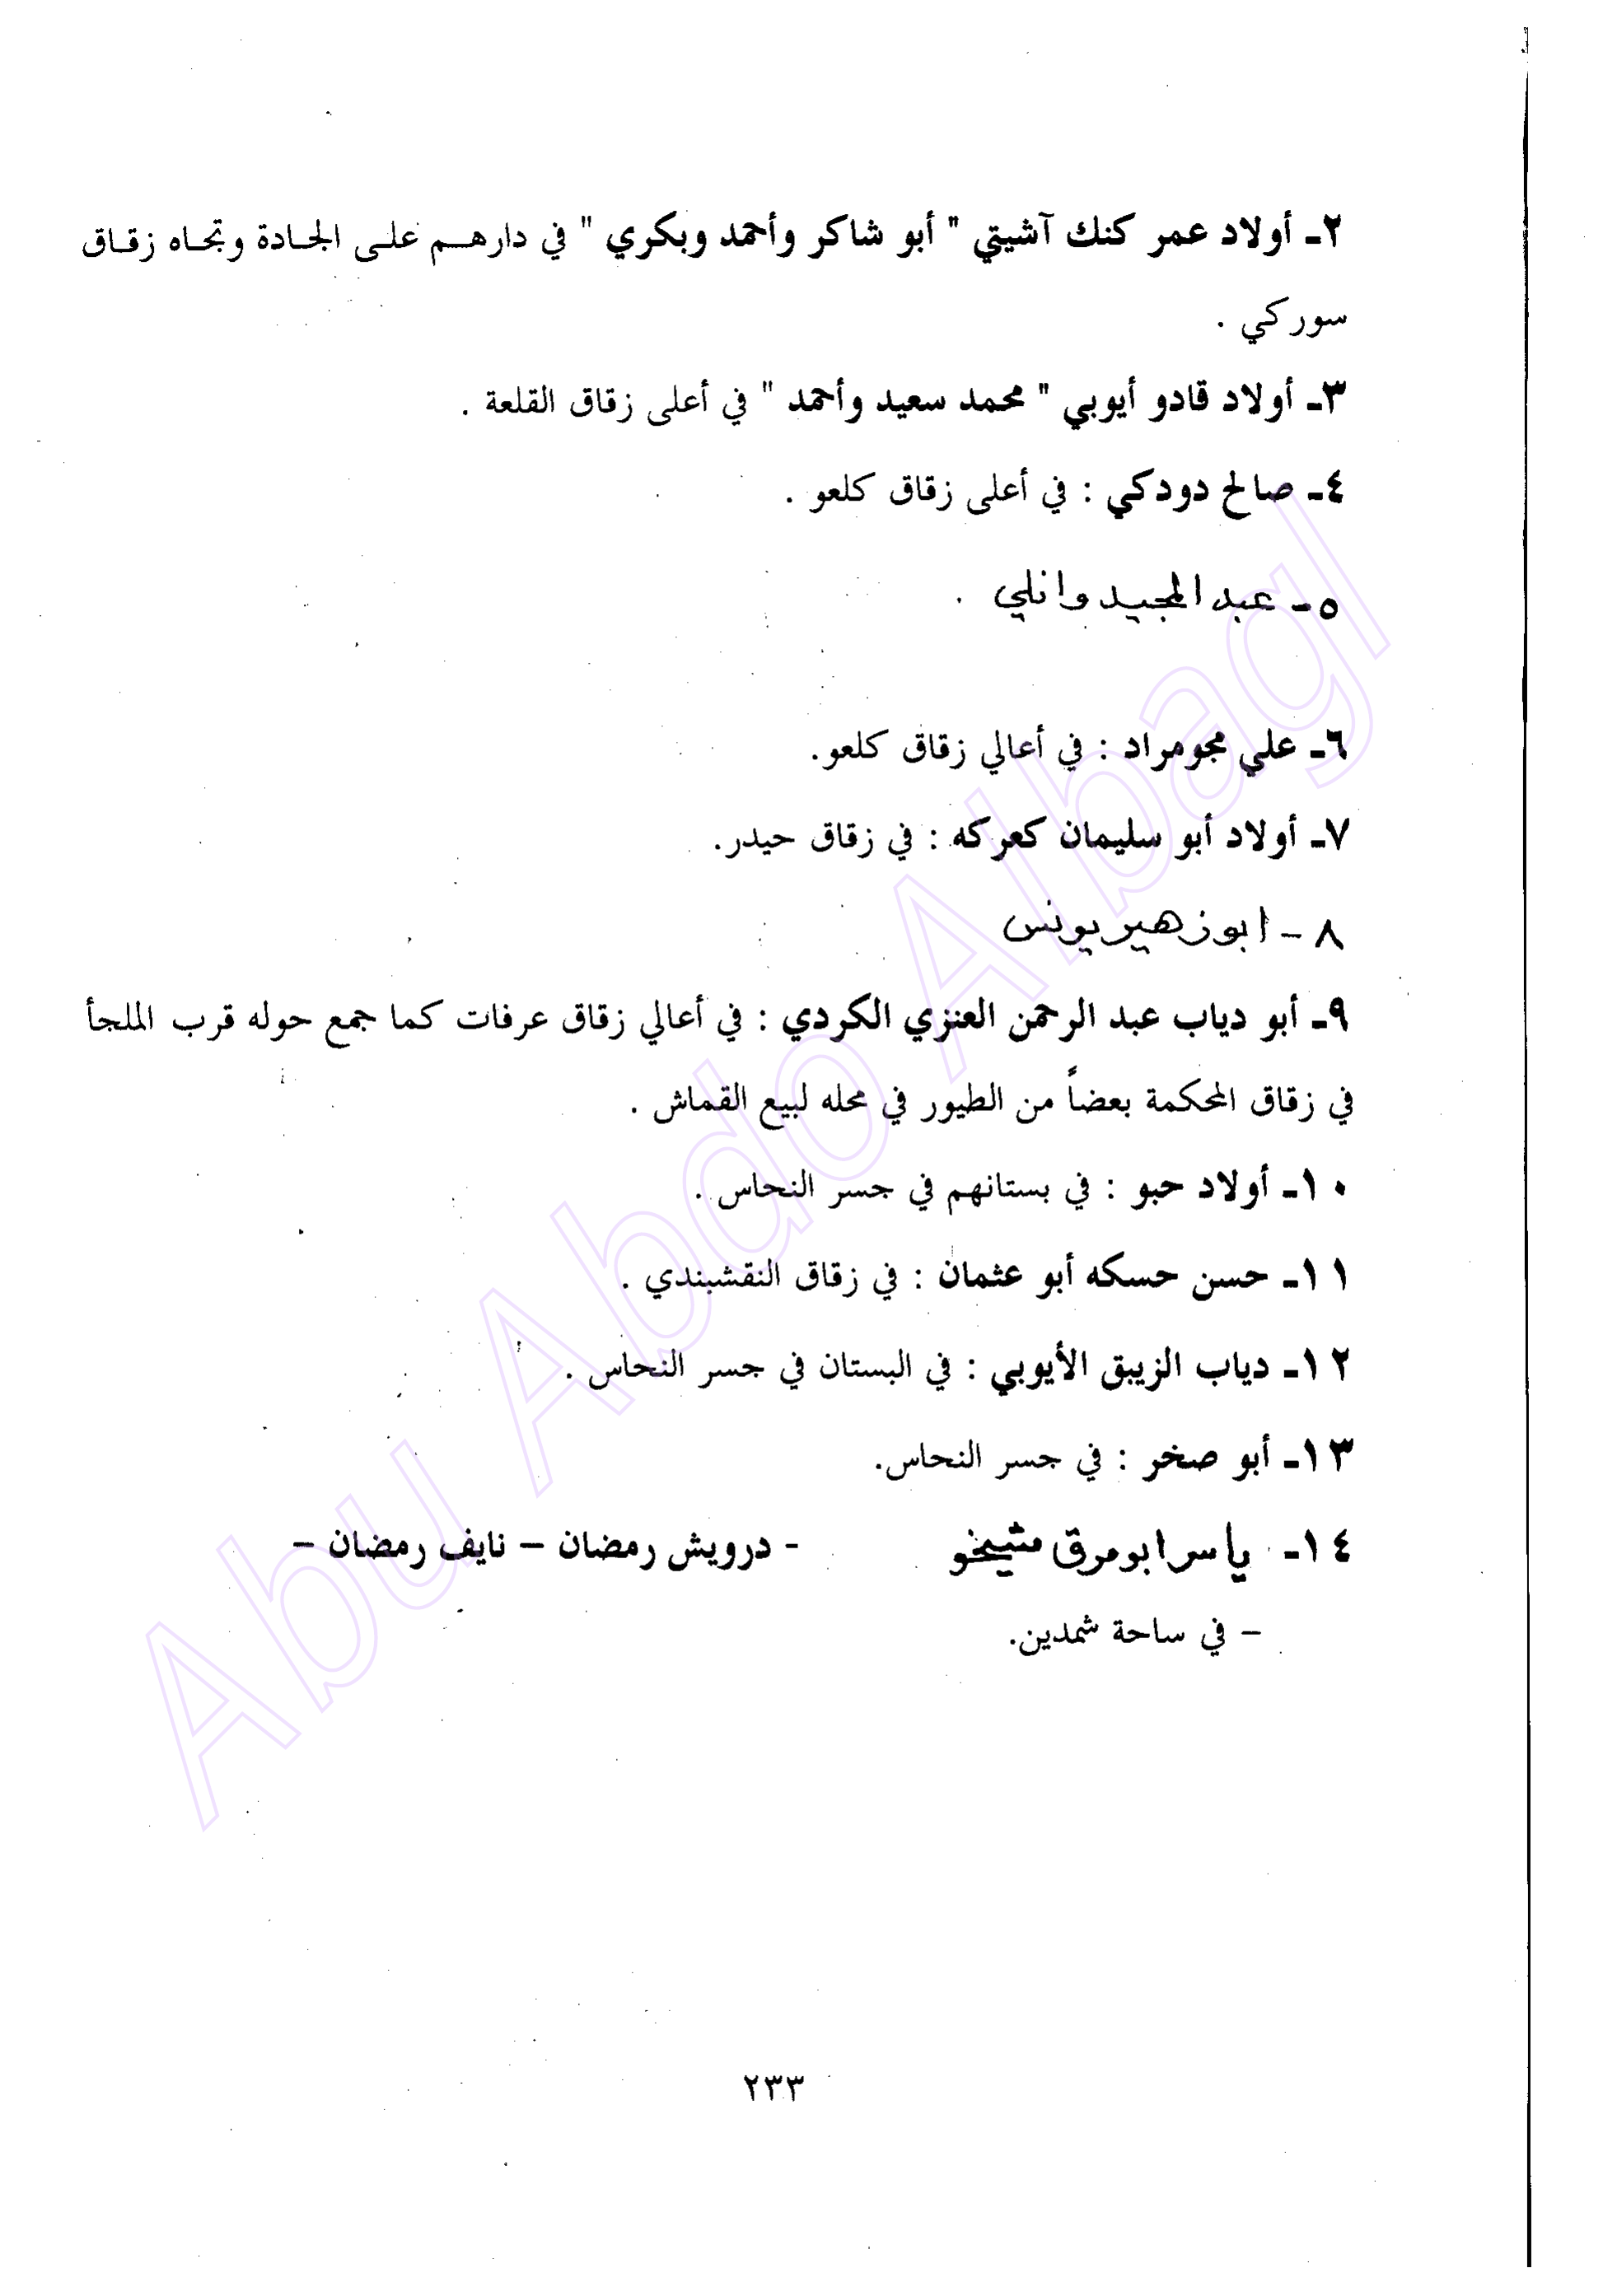 ٢ـ أولاد عمر كنك آشيتي " أبو شاكر وأحمد وبكري " في دارهم على الجادة وتجاه زقاق
سوركي .
٣ـ أولاد قادو أيوبي " محمد سعيد وأحمد " في أعلى زقاق القلعة .
٤ـ صالح دودكي : في أعلى زقاق كلعو .
٥ـ عبد المجيد وانلي .
٦ـ علي مجومراد : في أعالي زقاق كلعو.
٧ـ أولاد أبو سليمان كعركه : في زقاق حيدر.
٨ - ابو زهير يونس
٩ـ أبو دياب عبد الرحمن العنزي الكردي : في أعالي زقاق عرفات كما جمع حوله قرب الملجأ
في زقاق المحكمة بعضاً من الطيور في محله لبيع القماش .
١٠ـ أولاد حبو : في بستانهم في جسر النحاس .
١١ـ حسن حسكه أبو عثمان : في زقاق النقشبندي .
١٢ـ دياب الزيبق الأيوبي : في البستان في جسر النحاس .
١٣ـ أبو صخر : في جسر النحاس.
١٤ـ ياسر ابو مرق شيخو - درويش رمضان – نايف رمضان –
– في ساحة شمدين.
٢٣٣
Abu Abdo Albagl